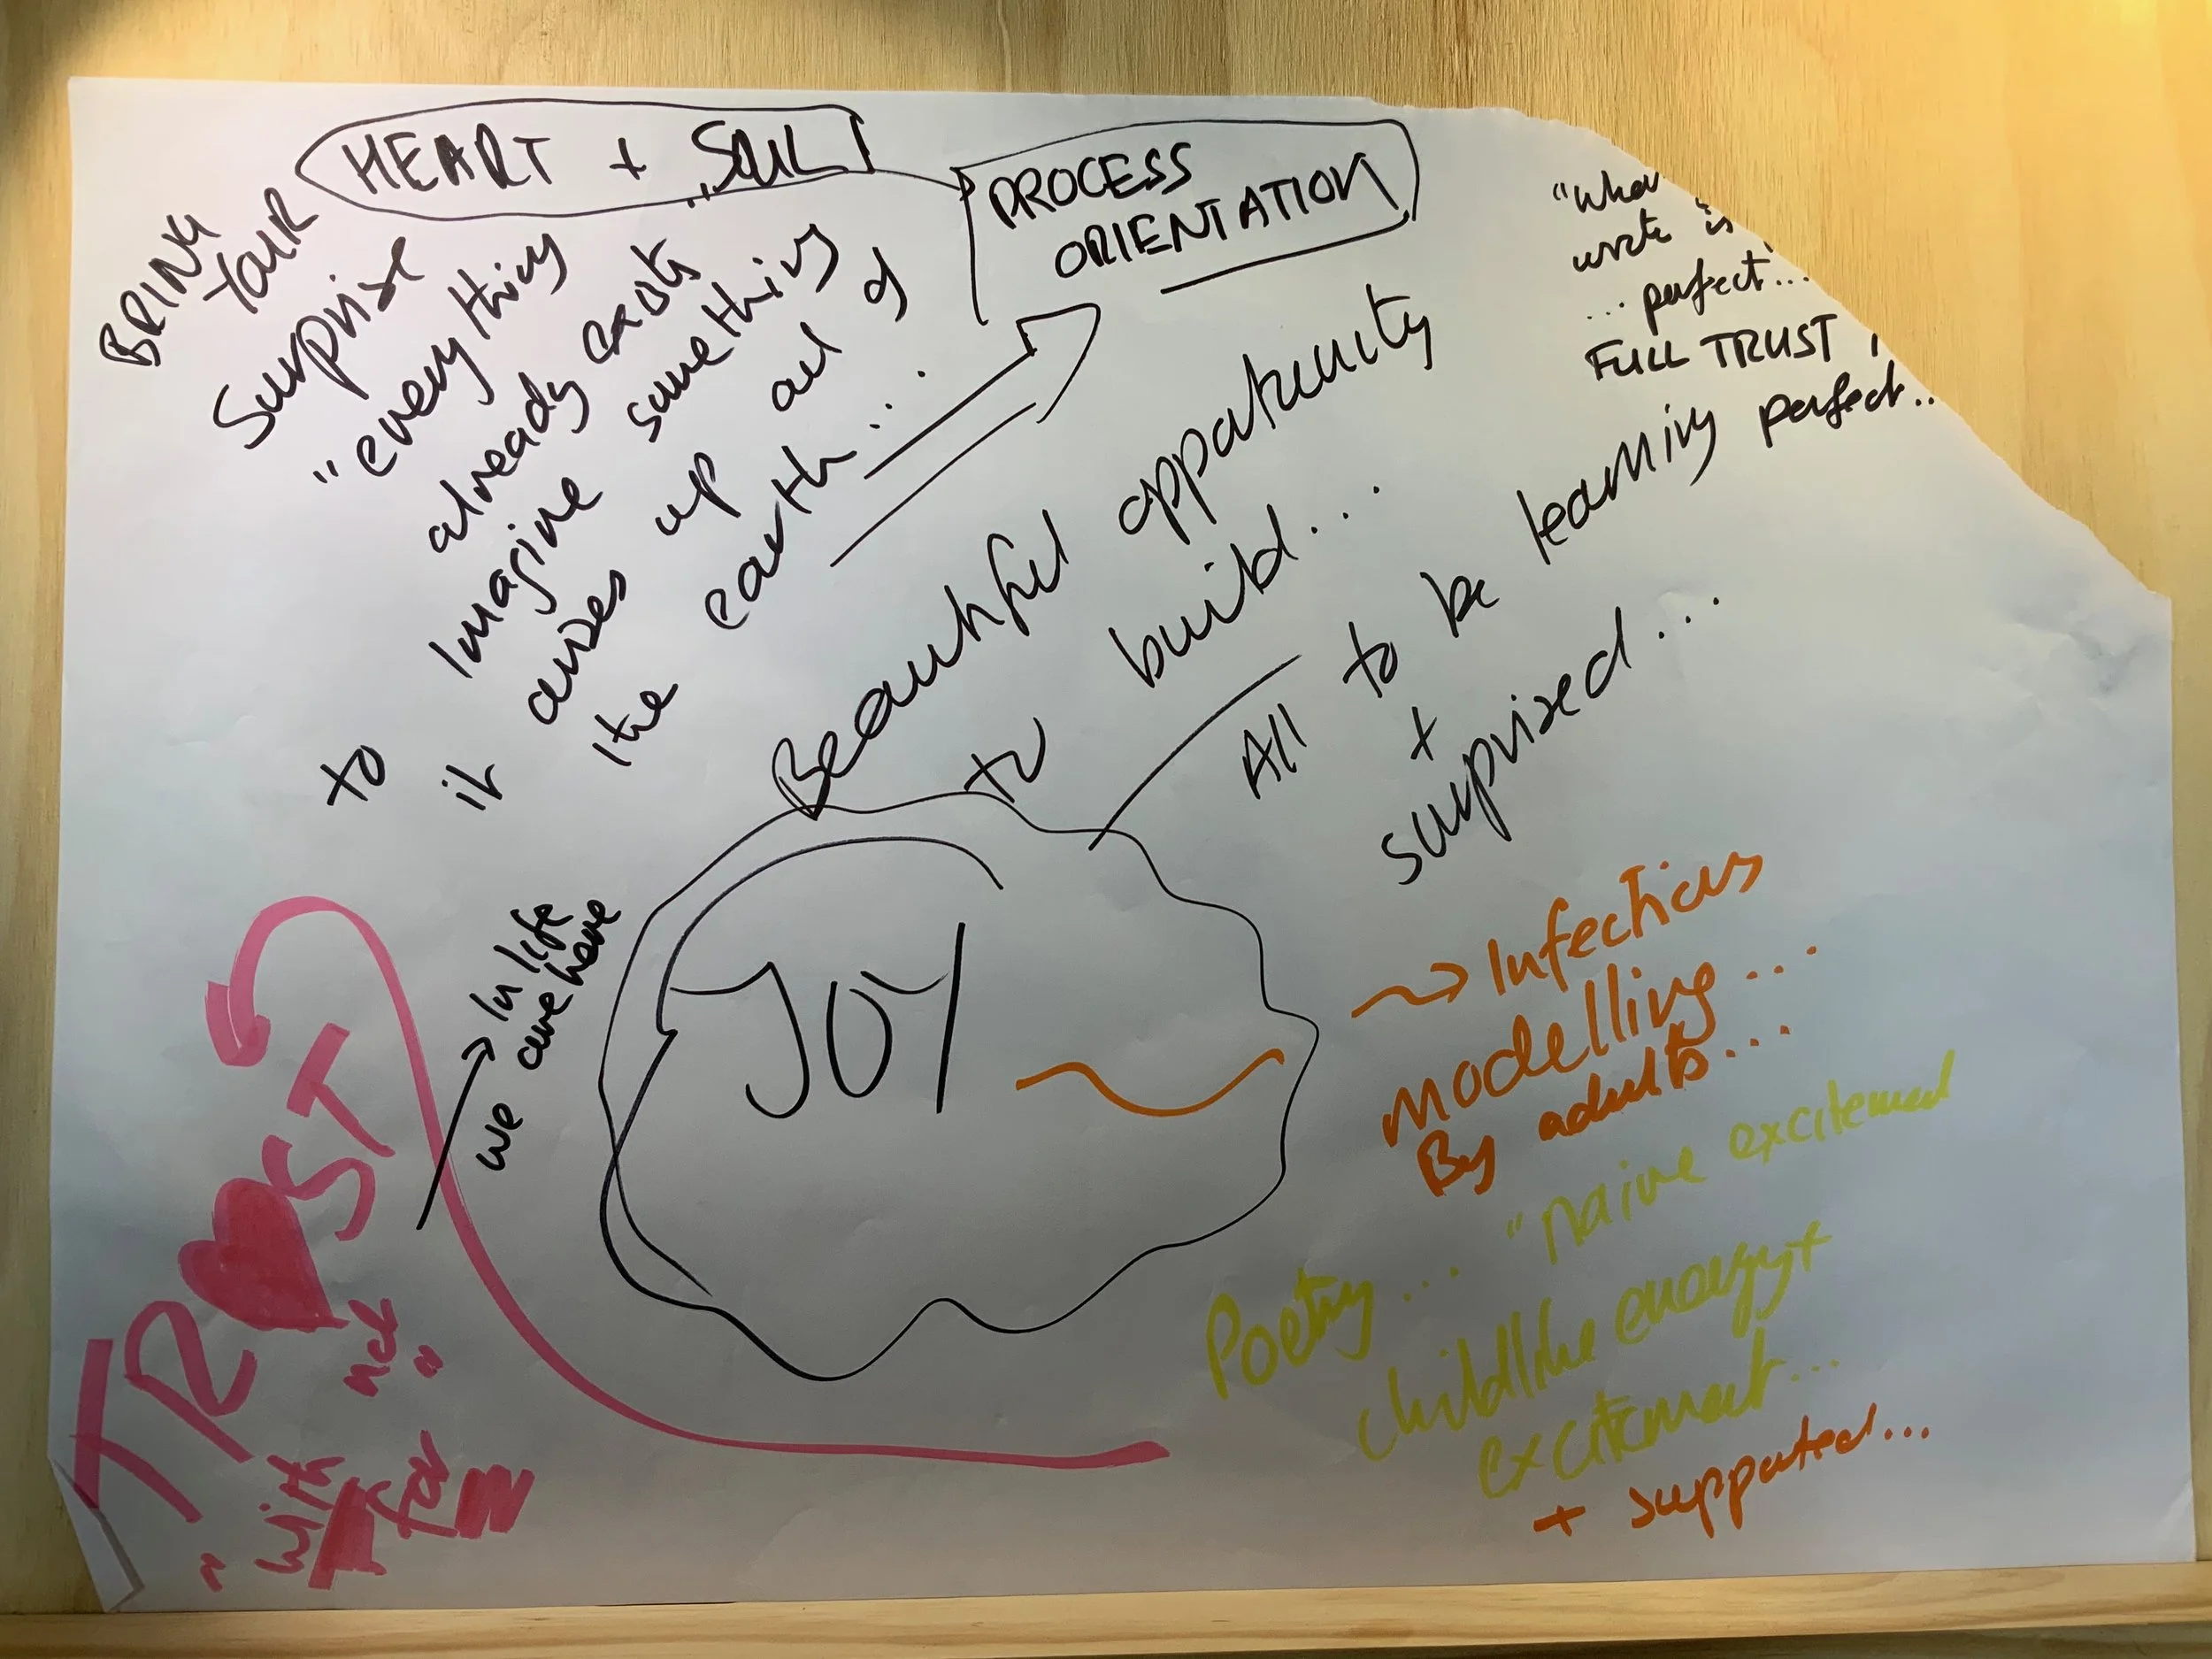 BRING YOUR
HEART + SOUL
PROCESS
ORIENTATION
Surprise
"everything
already exists"
to imagine something
it arises up out of
the earth...
"What
wrote is
...perfect...
FULL TRUST
perfect..
Beautiful opportunity
to build...
All to be learning
+
surprised...
JOY
In life
we are here
Infectious
modelling...
By adults...
Poetry... "naive excitement
childlike energy +
excitement...
+ supported...
TR♥ST
"with
not
for